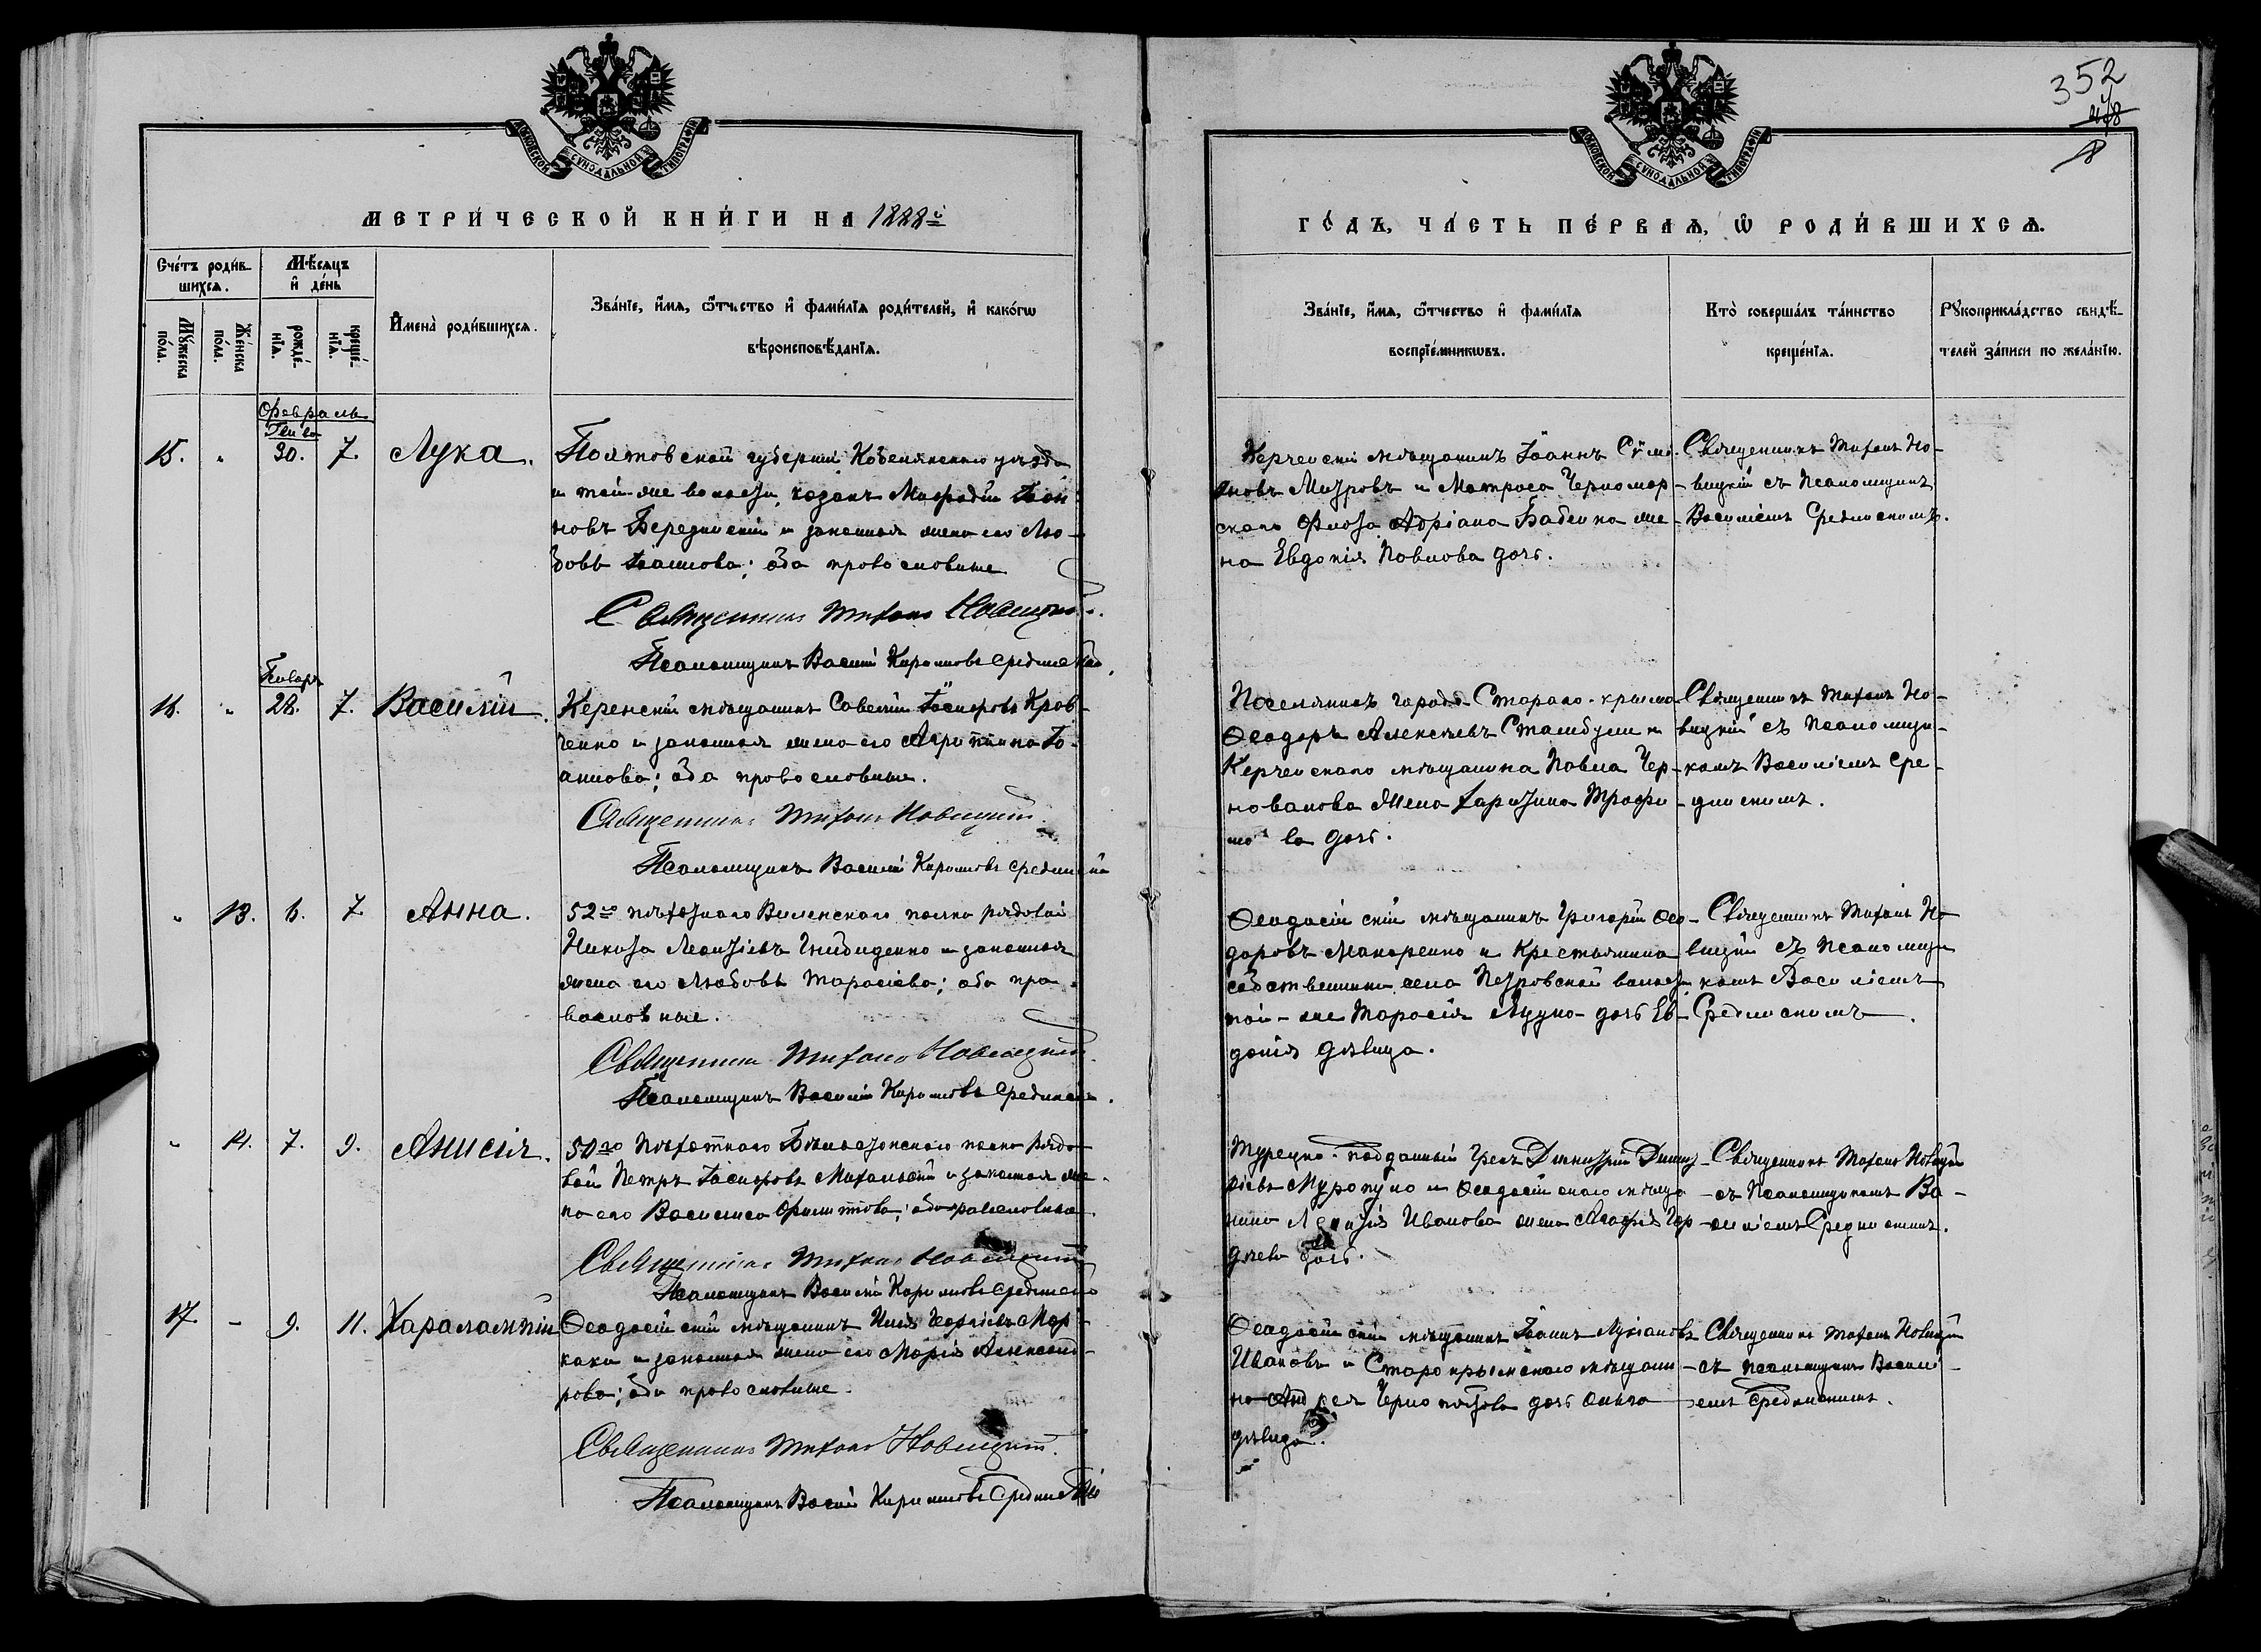 352
МОСКОВСКОЙ СѴНОДАЛЬНОЙ ТИПОГРАФІИ
МОСКОВСКОЙ СѴНОДАЛЬНОЙ ТИПОГРАФІИ
МЕТРИ́ЧЕСКОЙ КНИ́ГИ НА 1888й
ГО́ДЪ, ЧА́СТЬ ПЕ́РВАѦ, Ѽ РОДИ́ВШИХСѦ.
Сче́тъ роди́в-
шихсѧ.
Мѣ́сѧцъ
и҆ де́нь
Мꙋ́жеска
по́ла.
Же́нска
по́ла.
рожде́-
нїѧ.
креще́-
нїѧ.
И҆мена̀ роди́вшихсѧ.
Зва́нїе, и҆́мѧ, ѻ҆́тчество и҆ фами́лїѧ роди́телей, и҆ како́гѡ
вѣроисповѣ́данїѧ.
Зва́нїе, и҆́мѧ, ѻ҆́тчество и҆ фами́лїѧ
воспрїе́мникѡвъ.
Кто̀ соверша́лъ та́инство
креще́нїѧ.
Рꙋкоприкла́дство свидѣ́-
телей за́писи по жела́нїю.
Февраль
15. " 30. 7. Лука.
Полтавской губерніи Кобелякскаго уѣзда
и той-же волости, козакъ Меѳодій Іоан
новъ Бережнскій и законная жена его Лю-
бовь Іоаннова; оба православные
Священникъ Тихонъ Новицкій.
Псаломщикъ Василій Кириловъ Срединскій
Керченскій мѣщанинъ Іоаннъ Сѵме-
оновъ Митровъ и Матроса Черномор-
скаго Флота Адріана Бабенка же-
на Евдокія Павлова дочь.
Священникъ Тихонъ Но-
вицкій съ Псаломщик
Василіемъ Срединскимъ.
Январь
16. " 28. 7. Василій.
Керенскій мѣщанинъ Савелій Іосифовъ Крав
ченко и законная жена его Агриппина Іо-
аннова; оба православные.
Священникъ Тихонъ Новицкій.
Псаломщикъ Василій Кириловъ Срединскій
Поселянинъ города Стараго-крыма
Ѳеодоръ Алексѣевъ Стамбули и
Керченскаго мѣщанина Павла Чер-
новалова Жена Харитина Трофи-
мова дочь.
Священникъ Тихонъ Но-
вицкій съ Псаломщи-
комъ Василіемъ Сре-
динскимъ.
" 13. 6. 7. Анна.
52го пѣхотнаго Виленскаго полка рядовой
Никита Леонтіевъ Гнибиденко и законная
жена его Любовь Тарасіева; оба пра-
вославные.
Священникъ Тихонъ Новицкій.
Псаломщикъ Василій Кириловъ Срединскій.
Ѳеодосійскій мѣщанинъ Григорій Ѳео-
доровъ Макаренко и Крестьянина
собственника села Петровской волости
той-же Тарасія Луцко дочь Ев-
докія дѣвица.
Священникъ Тихонъ Но
вицкій съ Псаломщи
комъ Василіемъ
Срединскимъ.
" 14. 7. 9. Анисія.
50го Пѣхотнаго Бѣлостокскаго полка Рядо-
вой Петръ Іосифовъ Михальскій и законная же-
на его Василиса Филиппова; оба православные.
Священникъ Тихонъ Новицкій
Псаломщикъ Василій Кириловъ Срединскій
Турецко-подданный Грекъ Димитрій Димит-
ріевъ Муропуло и Ѳеодосійскаго мѣща-
нина Леонтія Иванова жена Агафія Гор-
дѣева дочь.
Священникъ Тихонъ Новицкій
съ Псаломщикомъ Ва-
силіемъ Срединскимъ.
17. - 9. 11. Харалампій
Ѳеодосійскій мѣщанинъ Илія Георгіевъ Мар-
кака и законная жена его Марія Александ-
рова; оба православные.
Священникъ Тихонъ Новицкій.
Псаломщикъ Василій Кириловъ Срединскій
Ѳеодосійскій мѣщанинъ Іоаннъ Лукіановъ
Ивановъ и Старокрымскаго мѣщани-
на Андрея Чернопятова дочь Ольга
дѣвица.
Священникъ Тихонъ Новицкій
съ псаломщикъ Василі-
емъ Срединскимъ.